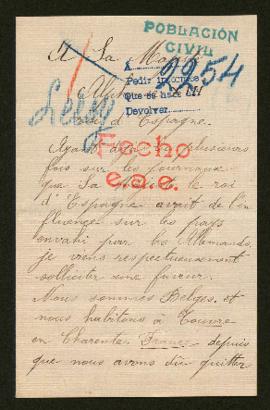 POBLACIÓN
CIVIL
2254
A Sa Majesté
Pedir informes
Que se haga
Devolver
Roi d'Espagne.
Ayant appris plusieurs
fois sur les journaux
Fecho
que Sa le roi
e.a.e.
d'Espagne avait de l'in
fluence sur les pays
envahi par les Allemands,
je viens respectueusement
solliciter une faveur.
Nous sommes Belges, et
nous habitons à Touvre
en Charentes France depuis
que nous avons dû quitter